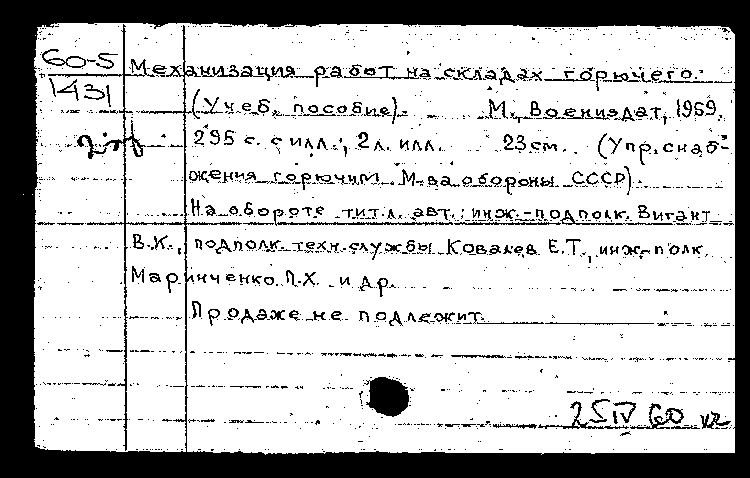 60-5
1431
Механизация работ на складах горючего.
(Учеб. пособие). М., Воениздат, 1959.
295 с. с илл., 2 л. илл. 23 см. (Упр. снаб-
жения горючим М-ва обороны СССР).
На обороте тит. л. авт.: инж.-подполк. Вигант
В.К., подполк. техн. службы Ковалев Е.Т., инж.-полк.
Маринченко П.Х. и др.
Продаже не подлежит.
25 IV 60